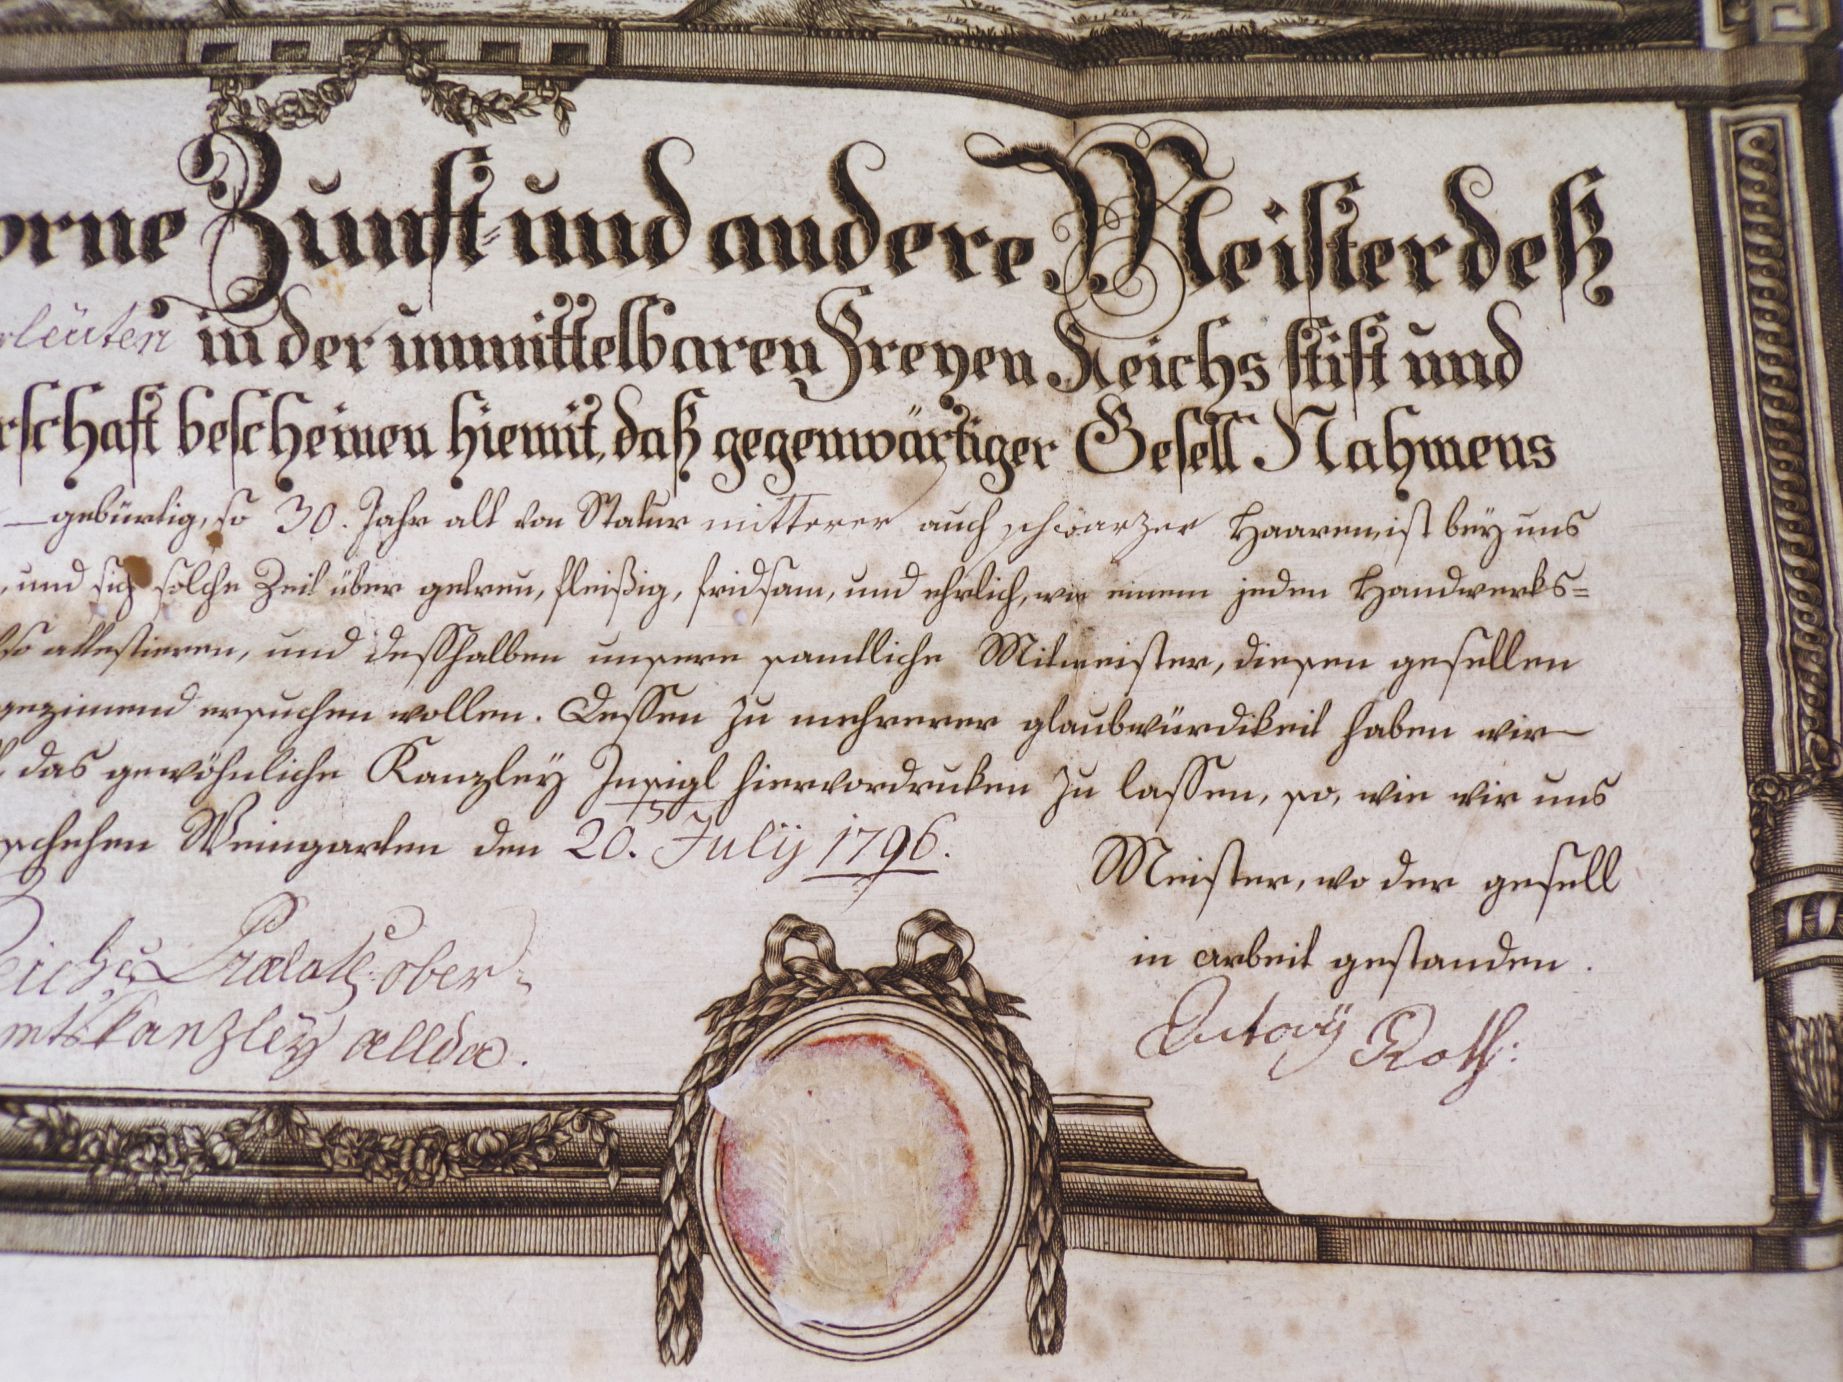 orne Zunft- und andere Meister deß
rleüten in der unmittelbaren Freyen Reichs stift und
rschaft bescheinen hiemit, daß gegenwärtiger Gesell Nahmens
gebürtig, so 30. Jahr alt von Statur mitterer auch schwarzer Haaren, ist bey uns
, und sich solche Zeit über getreu, fleißig, fridsam, und ehrlich, wie einem jeden Handwerks=
so attestieren, und desshalben unsere samtliche Mitmeister, diesen gesellen
gezimend ersuchen wollen. Dessen zu mehrerer glaubwürdikeit haben wir
das gewöhnliche Kanzley Insigl hiervordruken zu lassen, so, wie wir uns
schehen Weingarten den 20. July 1796.
Meister, wo der gesell
in arbeit gestanden.
eichs Prælatl: ober-
mtskanzley allda.
Antony Roth: